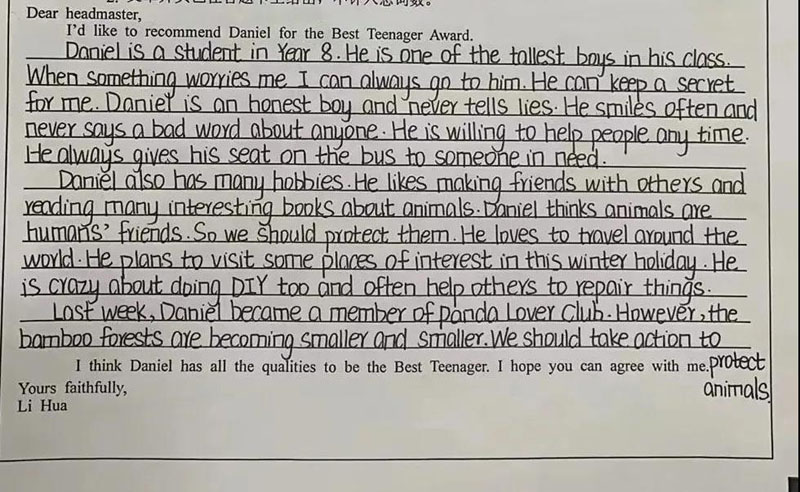 Dear headmaster,
I'd like to recommend Daniel for the Best Teenager Award.
Daniel is a student in Year 8. He is one of the tallest boys in his class.
When something worries me, I can always go to him. He can keep a secret
for me. Daniel is an honest boy and never tells lies. He smiles often and
never says a bad word about anyone. He is willing to help people any time.
He always gives his seat on the bus to someone in need.
Daniel also has many hobbies. He likes making friends with others and
reading many interesting books about animals. Daniel thinks animals are
humans' friends. So we should protect them. He loves to travel around the
world. He plans to visit some places of interest in this winter holiday. He
is crazy about doing DIY too and often help others to repair things.
Last week, Daniel became a member of panda Lover Club. However, the
bamboo forests are becoming smaller and smaller. We should take action to
protect
animals
I think Daniel has all the qualities to be the Best Teenager. I hope you can agree with me.
Yours faithfully,
Li Hua